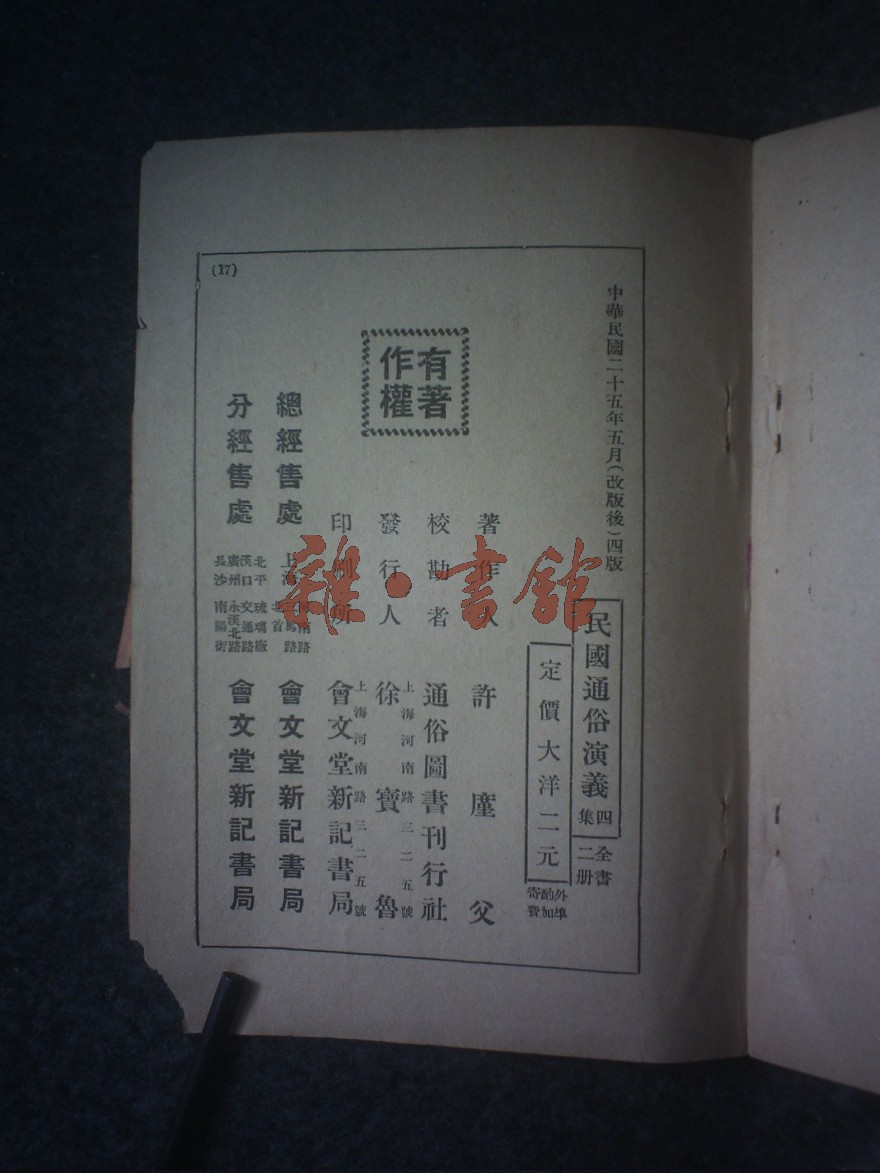 中華民國二十五年五月(改版後)四版
民國通俗演義 四集
全書二册
定價大洋二元
外埠酌加寄費
著作人 許廑父
校勘者 通俗圖書刊行社
上海河南路三二五號
發行人 徐寶魯
上海河南路三二五號
印刷所 會文堂新記書局
有著作權
總經售處 上海 河南路三馬路北首 會文堂新記書局
分經售處
北平 琉璃廠
漢口 交通路
廣州 永漢北路
長沙 南陽街
會文堂新記書局
(17)
雜·書館